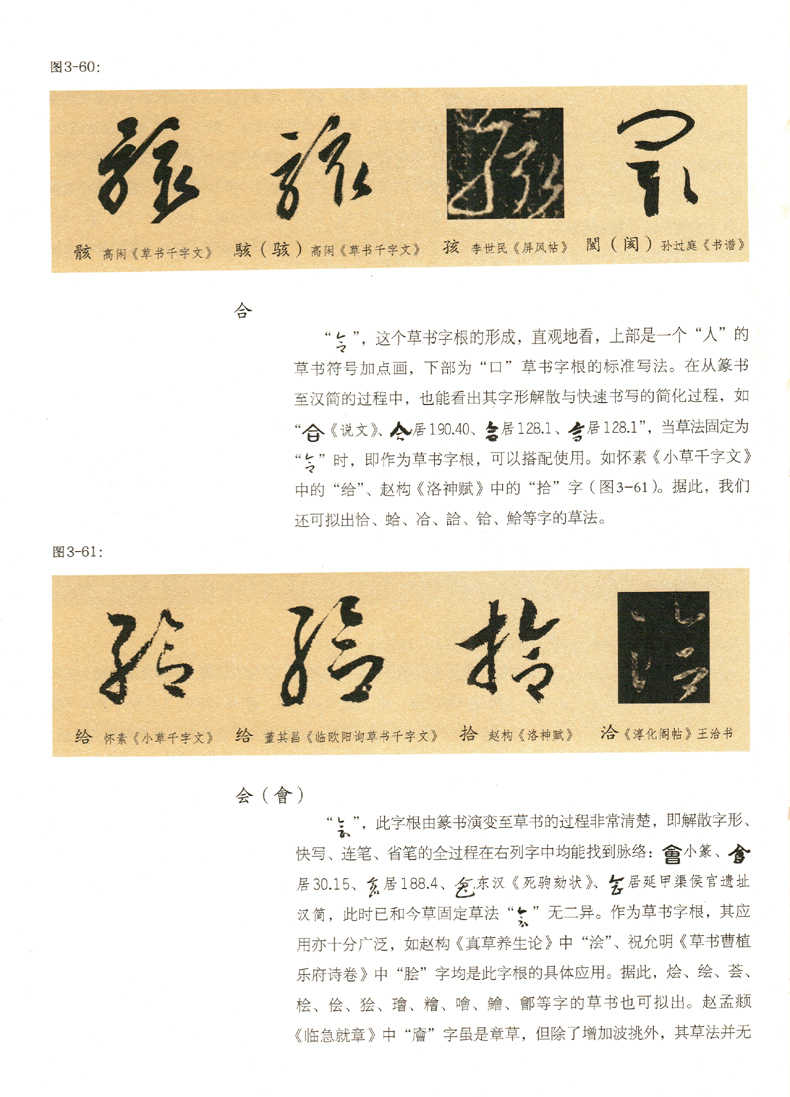 图3-60：
骸 高闲《草书千字文》 駭（骇）高闲《草书千字文》 孩 李世民《屏风帖》 閡（阂）孙过庭《书谱》
合
“ ”，这个草书字根的形成，直观地看，上部是一个“人”的
草书符号加点画，下部为“口”草书字根的标准写法。在从篆书
至汉简的过程中，也能看出其字形解散与快速书写的简化过程，如
“合《说文》、合居190.40、合居128.1、合居128.1”，当草法固定为
“ ”时，即作为草书字根，可以搭配使用。如怀素《小草千字文》
中的“给”、赵构《洛神赋》中的“拾”字（图3-61）。据此，我们
还可拟出恰、蛤、冾、詥、铪、鮯等字的草法。
图3-61：
给 怀素《小草千字文》 给 董其昌《临欧阳询草书千字文》 拾 赵构《洛神赋》 洽《淳化阁帖》王洽书
会（會）
“ ”，此字根由篆书演变至草书的过程非常清楚，即解散字形、
快写、连笔、省笔的全过程在右列字中均能找到脉络：會小篆、會
居30.15、 居188.4、 东汉《死驹劾状》、 居延甲渠侯官遗址
汉简，此时已和今草固定草法“ ”无二异。作为草书字根，其应
用亦十分广泛，如赵构《真草养生论》中“浍”、祝允明《草书曹植
乐府诗卷》中“脍”字均是此字根的具体应用。据此，烩、绘、荟、
桧、侩、狯、璯、糩、噲、鱠、鄶等字的草书也可拟出。赵孟頫
《临急就章》中“ ”字虽是章草，但除了增加波挑外，其草法并无